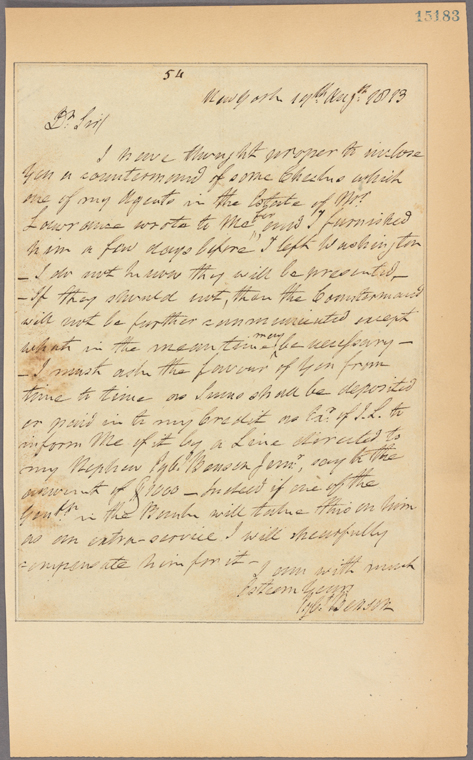 15183
54
New York 19th Augth 1813
Dr. Sir/
I have thought proper to inclose
You a countermand of some Checks which
one of my Agents in the Estate of Mr.
Lowrance wrote to Me for and I furnished
him a few days before I left Washington
– I do not know they will be presented –
– If they should not, then the Countermand
will not be further communicated except
what in the mean time may be necessary –
– I must ask the favour of You from
time to time as Sums shall be deposited
or paid in to my Credit as Exr. of J. L. to
inform Me of it by a Line directed to
my Nephew Egbt. Benson Junr, say to the
amount of $1000 – Indeed if one of the
Gentn in the Bank will take this on him
as an extra-service I will chearfully
compensate him for it –
I am with much
Esteem Yours
Egbt. Benson